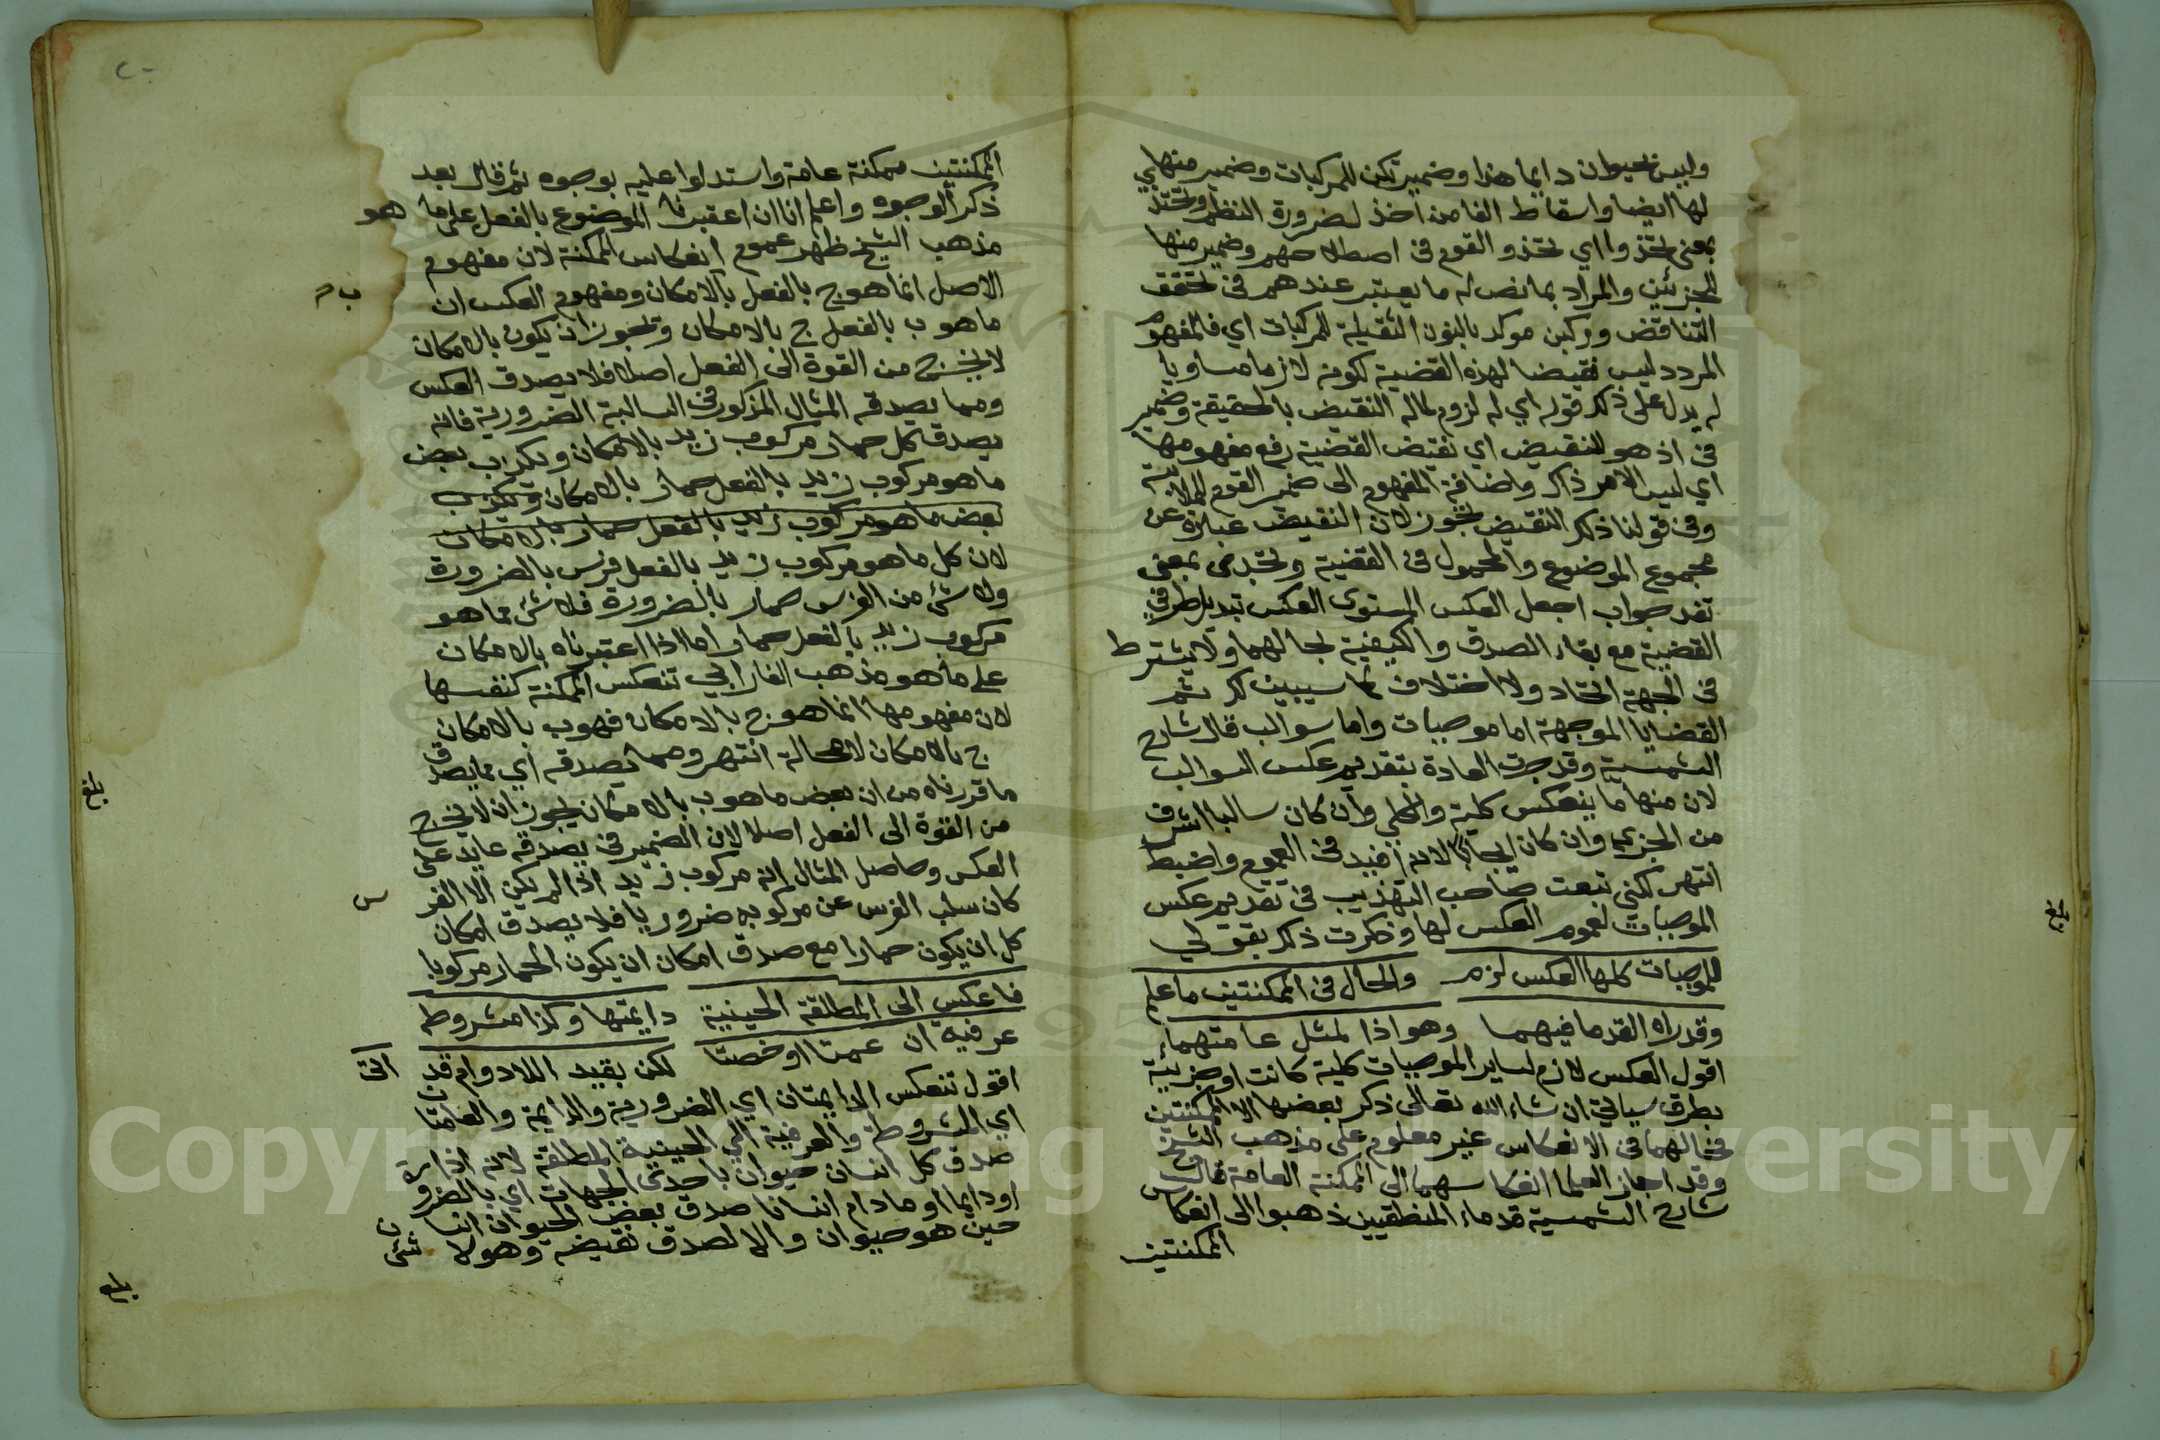 وليس بحيوان دايما هذا وضمير تكن للمركبات وضمير منها بي
لها ايضا واسقاط الفا من اخذ لضرورة النظم وتحتذ
بمعنى تحتذوا اي تحتذو القوم في اصطلاحهم وضمير منها
للجزئين والمراد بما نص له ما يعتبر عندهم في تحقق
التناقض وركبن موكد بالنون الثقيلة للمركبات اي فالمفهوم
المردد ليس نقيضا لهذه القضية لكونه لازما مساويا
له يدل على ذلك قوله اي له لزوم لماله النقيض بالحقيقة وضمير
في اذ هو للنقيض اي نقيض القضية رفع مفهومها
اي ليس الامر ذاك واضافة المفهوم الى ضمير القوم للملابسة
وفي قولنا ذلك النقيض تجوز لان النقيض عبارة عن
مجموع الموضوع والمحمول في القضية وتحتدى بمعنى
تفد جواب اجعل العكس المستوى العكس تبديل طرفي
القضية مع بقاء الصدق والكيفية بحالهما ولا يشترط
في الجهة اتحاد ولا اختلاف كما سيبين لك ثم
القضايا الموجهة اما موجبات واما سوالب قال شارح
الشمسية وقد جرت العادة بتقديم عكس السوالب
لان منها ما ينعكس كلية والكلي وان كان سالبا اشرف
من الجزيي وان كان ايجابا لانه افيد في العموم واضبط
انتهى لكني تبعت صاحب التهذيب في تقديم عكس
الموجبات لعموم العكس لها وذكرت ذلك بقولي
للموجبات كلها العكس لزم والحال في الممكنتين ما علم
وقد راه القدما فيهما وهو اذا لمثل عامتهما
اقول العكس لازم لساير الموجبات كلية كانت او جزئية
بطرق سياتي ان شاء الله تعالى ذكر بعضها الا الممكنتين
فحالهما في الانعكاس غير معلوم على مذهب الشيخ
وقد اجاز العلما انعكاسهما الى الممكنة العامة قال في
شارح الشمسية قدماء المنطقيين ذهبوا الى انعكاس
الممكنتين
بلغ
الممكنتين ممكنة عامة واستدلوا عليه بوجوه ثم قال بعد
ذكر الوجوه واعلم انا ان اعتبرنا الموضوع بالفعل على ما هو
مذهب الشيخ ظهر عموم انعكاس الممكنة لان مفهوم
الاصل انما هو ج بالفعل بالامكان ومفهوم العكس ان
ما هو ب بالفعل ج بالامكان ويجوز ان يكون بالامكان
لا يخرج من القوة الى الفعل اصلا فلا يصدق العكس
ومما يصدقه المثال المذكور في السالبة الضرورية فانه
يصدق كل حمار مركوب زيد بالامكان ويكذب بعض
ما هو مركوب زيد بالفعل حمار بالامكان ويكذب
بعض ما هو مركوب زيد بالفعل حمار بالامكان
لان كل ما هو مركوب زيد بالفعل فرس بالضرورة
ولا شئ من الفرس حمار بالضرورة فلا شئ مما هو
مركوب زيد بالفعل حمار اما اذا اعتبرناه بالامكان
على ما هو مذهب الفارابي تنعكس الممكنة كنفسها
لان مفهومها انما هو ج بالامكان فهو ب بالامكان
ج بالامكان لا محالة انتهى ومما يصدقه اي مما يصدق
ما قررناه من ان بعض ما هو ب بالامكان يجوز ان لا يخرج
من القوة الى الفعل اصلا لان الضمير في يصدقه عايد على
العكس وحاصل المثال انه مركوب زيد اذا لم يكن الا الفرس
كان سلب الفرس عن مركوبه ضروريا فلا يصدق امكان
كل ان يكون حمارا مع صدق امكان ان يكون الحمار مركوبا
فاعكس الى المطلقة الحينية دايمتها وكذا مشروطه
عرفية ان عمتا او خصتا لكن بقيد اللادوام قد اتى
اقول تنعكس الدايمتان اي الضرورية والدايمة والعامتان
اي المشروطة والعرفية الى الحينية المطلقة لانه اذا
صدق كل انسان حيوان باحدى الجهات اي بالضرورة
او دايما او مادام انسانا صدق بعض الحيوان انسان
حين هو حيوان والا لصدق نقيضه وهو لا شئ
بلغ
بلغ
Copyright © King Saud University